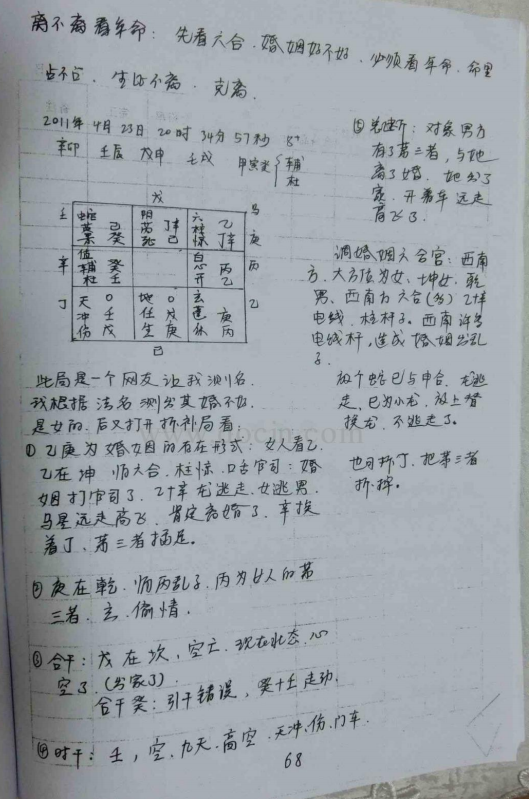 离不离看年命：先看六合.婚姻好不好.必须看年命.命里
占不占.生比不离.克离.
2011年4月23日20时34分57秒 8+
辛卯 壬辰 戊申 壬戌 甲寅癸 辅
杜
戊
壬 蛇 阴 六 马
芮 己 丁辛 柱 乙
景 癸 死 己 惊 丁辛 庚
辛 值 白
辅 癸 心 丙
杜 壬 开 乙 丙
丁 天 O 地 O 玄 乙
冲 壬 任 戊 蓬 庚
伤 戊 生 庚 休 丙
己
此局是一个网友让我测名.
我根据法名测出其婚不好.
是女的.后又打开拆补局看：
① 乙庚为婚姻的存在形式：女人看乙.
乙在坤.临六合.柱惊.口舌官司：婚
姻打官司了.乙+辛龙逃走.女逃男.
马星远走高飞.肯定离婚了.辛挨
着丁.第三者插足。
② 庚在乾.临丙乱子.丙为女人的第
三者.玄.偷情.
③ 合干：戊在坎，空亡.现在状态.心
空了.(出家了).
合干癸：引干错误，癸+壬走动.
④ 时干：壬，空.九天.高空.天冲.伤.门车.
⑤ 总断：对象男方
有了第三者，与她
离了婚.她出了
家.开着车远走
高飞了.
调婚姻六合宫：西南
方.大方位为女.坤女.乾
男、西南为六合(多)乙+辛
电线.柱杆子。西南许多
电线杆，造成婚姻出乱
子.
放个蛇巳与申合.龙逃
走，巳为小龙.放上替
换龙.不逃走了。
也可拆丁.把第三者
拆掉。
68